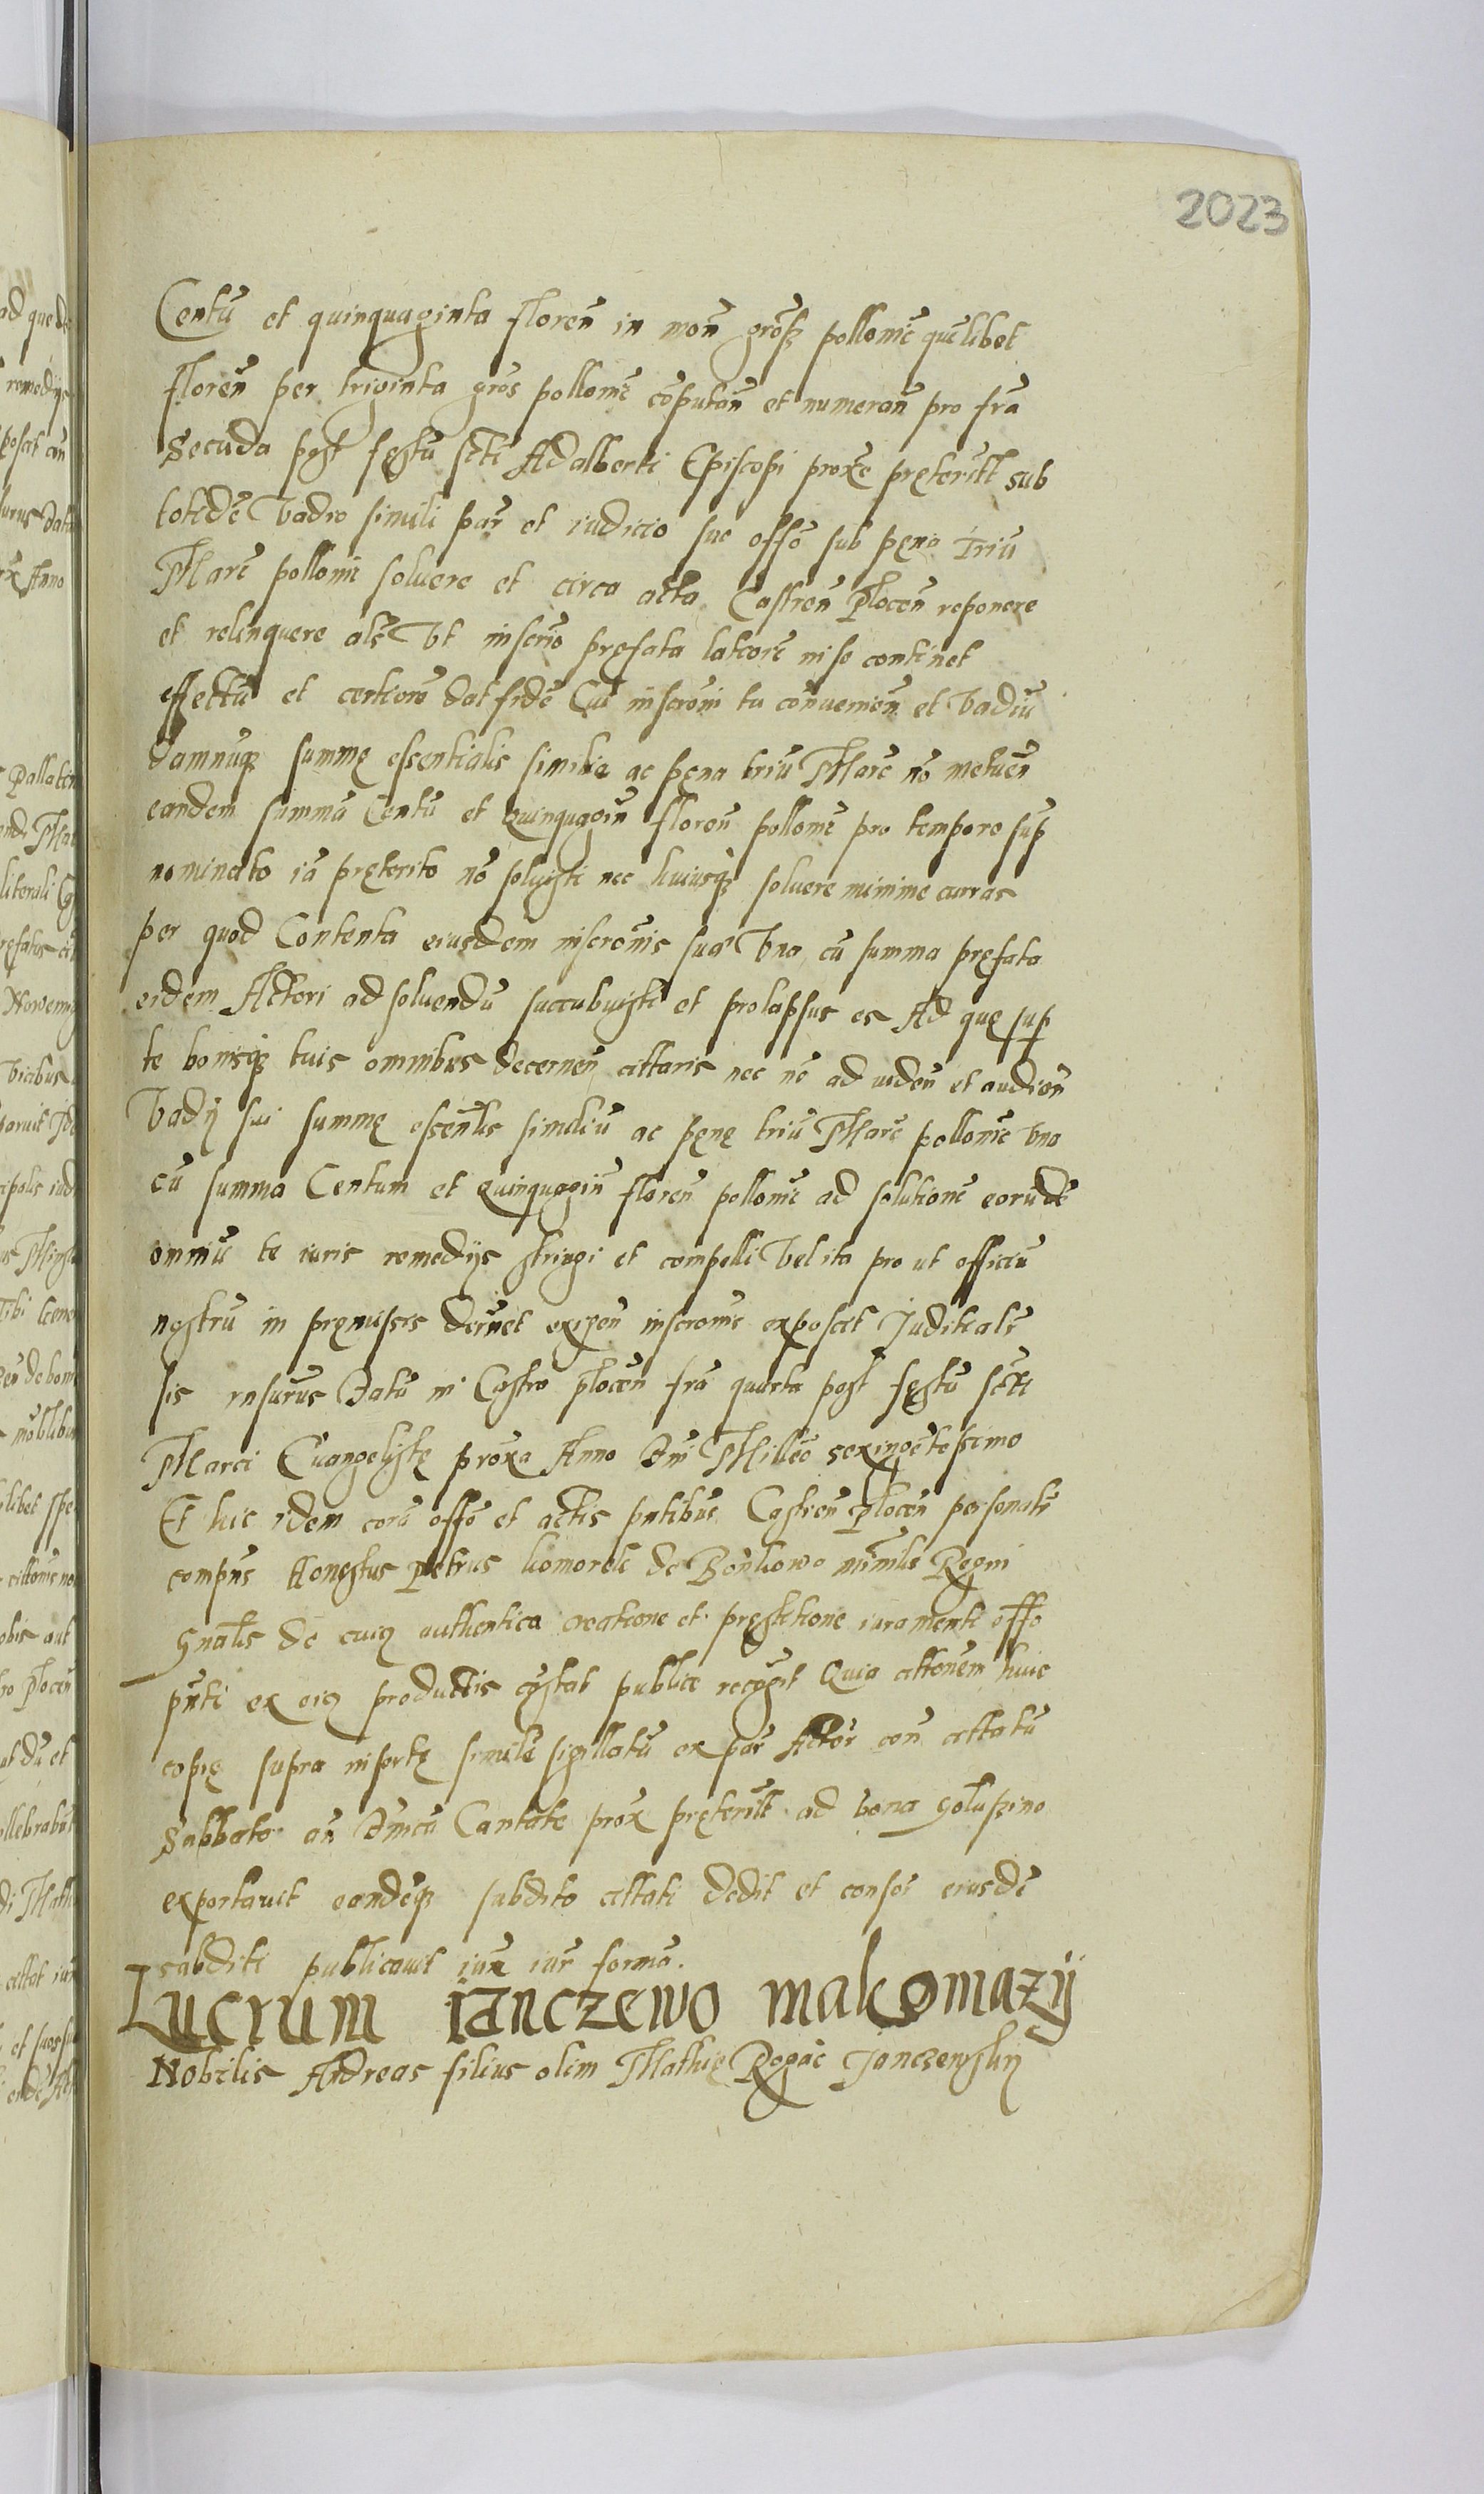 2023
Centũ et quinquaginta floreñ in moñ grosz polloni͠c quelibet
floreñ per triginta gros̃ polloni͠c cõputañ et numerañ pro fr̃a
Secũda post festũ scti Adalberti Episcopi proxe pręterit̃t sub
totidẽ Vadio simili par̃ et iudicio sue offõ sub pęna Triũ
Marc̃ pollonic soluere et circa acta Castreñ Plocen̄ reponere
et relinquere als̃ Vt inscrõ pręfata lattiore in se continet
effectũ et certiorẽ dat fidẽ Cui inscrõni tu conuenieñ et Vadiũ
damnũqz summę essentialis similia ac pęna triũ Marc̃ nõ metueñ
eandem summã Centũ et Quinquagiñ floreñ polloni͠c pro tempore sup
nominato iã pręterito nõ soluisti nec huiusqz soluere minime curras
per quod Contenta eiusdem inscrõnis sua Vna cũ summa pręfata
eidem Actori ad soluendũ succubuisti et prolapsus es Ad quę sup
te bonisqz tuis omnibus decerneñ cittaris nec nõ ad uideñ et audieñ
Vadij sui summę essentlis similiũ ac pęnę triũ Marc̃ polloni͠c vna
cũ summa Centum et Quinquagiñ floreñ polloni͠c ad solutionẽ eorũdẽ
omniũ te iuris remedijs stringi et compelli Vel ita pro ut officiũ
nostrũ in pręmissis decernet exigeñ inscrõnis exposcit Juditialr̃
sis rn̄surus Datũ in Castro ploceñ fr̃a quarta post festũ scti
Marci Euangelistę proxa Anno Dni Milleõ sexingẽtesimo
Et hic idem corã offõ et actis pn̄tibus Castreñ Ploceñ personalr̃
compn̄s Honestus Petrus komorek de Bonkowo mi͠nlis Regni
Gnãlis de cuiq authentica creatione et pręstitione iuramenti offo
pn̄ti ex eiq productis cõstat publice recõgit Quia cittõnem huic
copię supra insertę similẽ sigillatũ ex par̃ Actor̃ con̄ cittatũ
Sabbato añ Dnicã Cantate prox pręterit̃t ad bona Goluszino
exportauit eandẽqz subdito cittati dedit et consor̃ eiusdẽ
subditi publicauit iux̃ iur̃ formã.
Lucrum ianczewo makomazÿ
Nobilis Andreas filius olim Mathię Rogac̃ Janczewskÿ